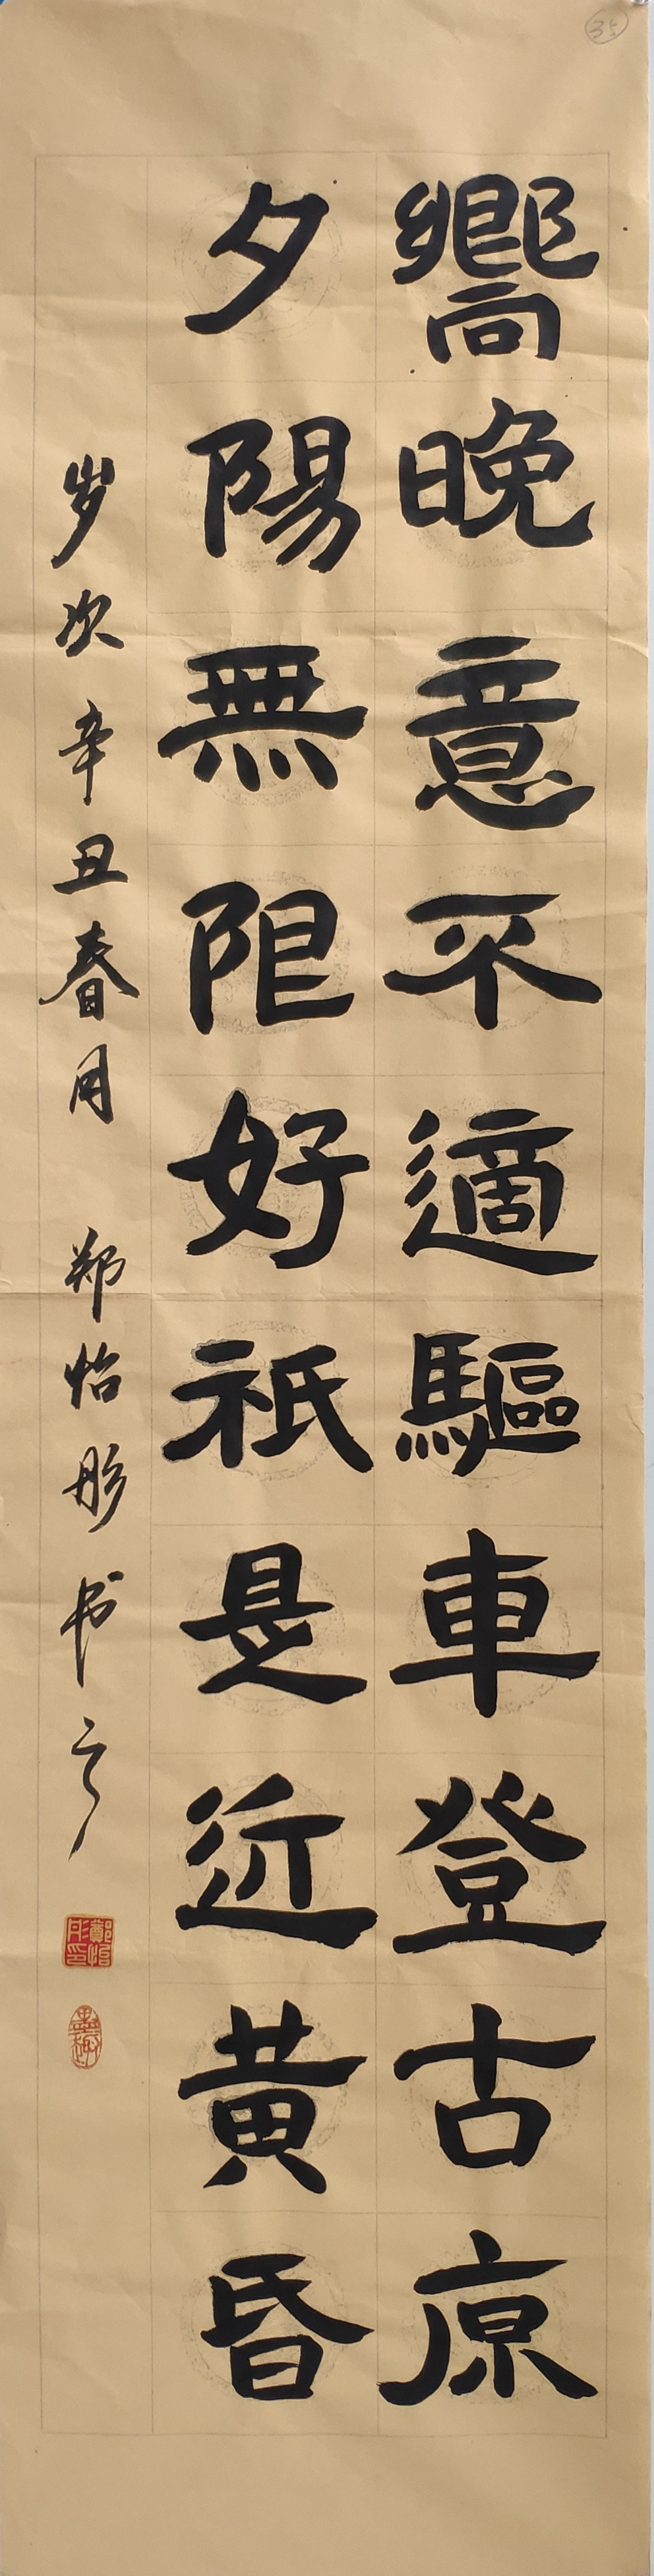 35
嚮晚意不適驅車登古原
夕陽無限好祇是近黄昏
岁次辛丑春月 郑怡彤书之
鄭怡彤印